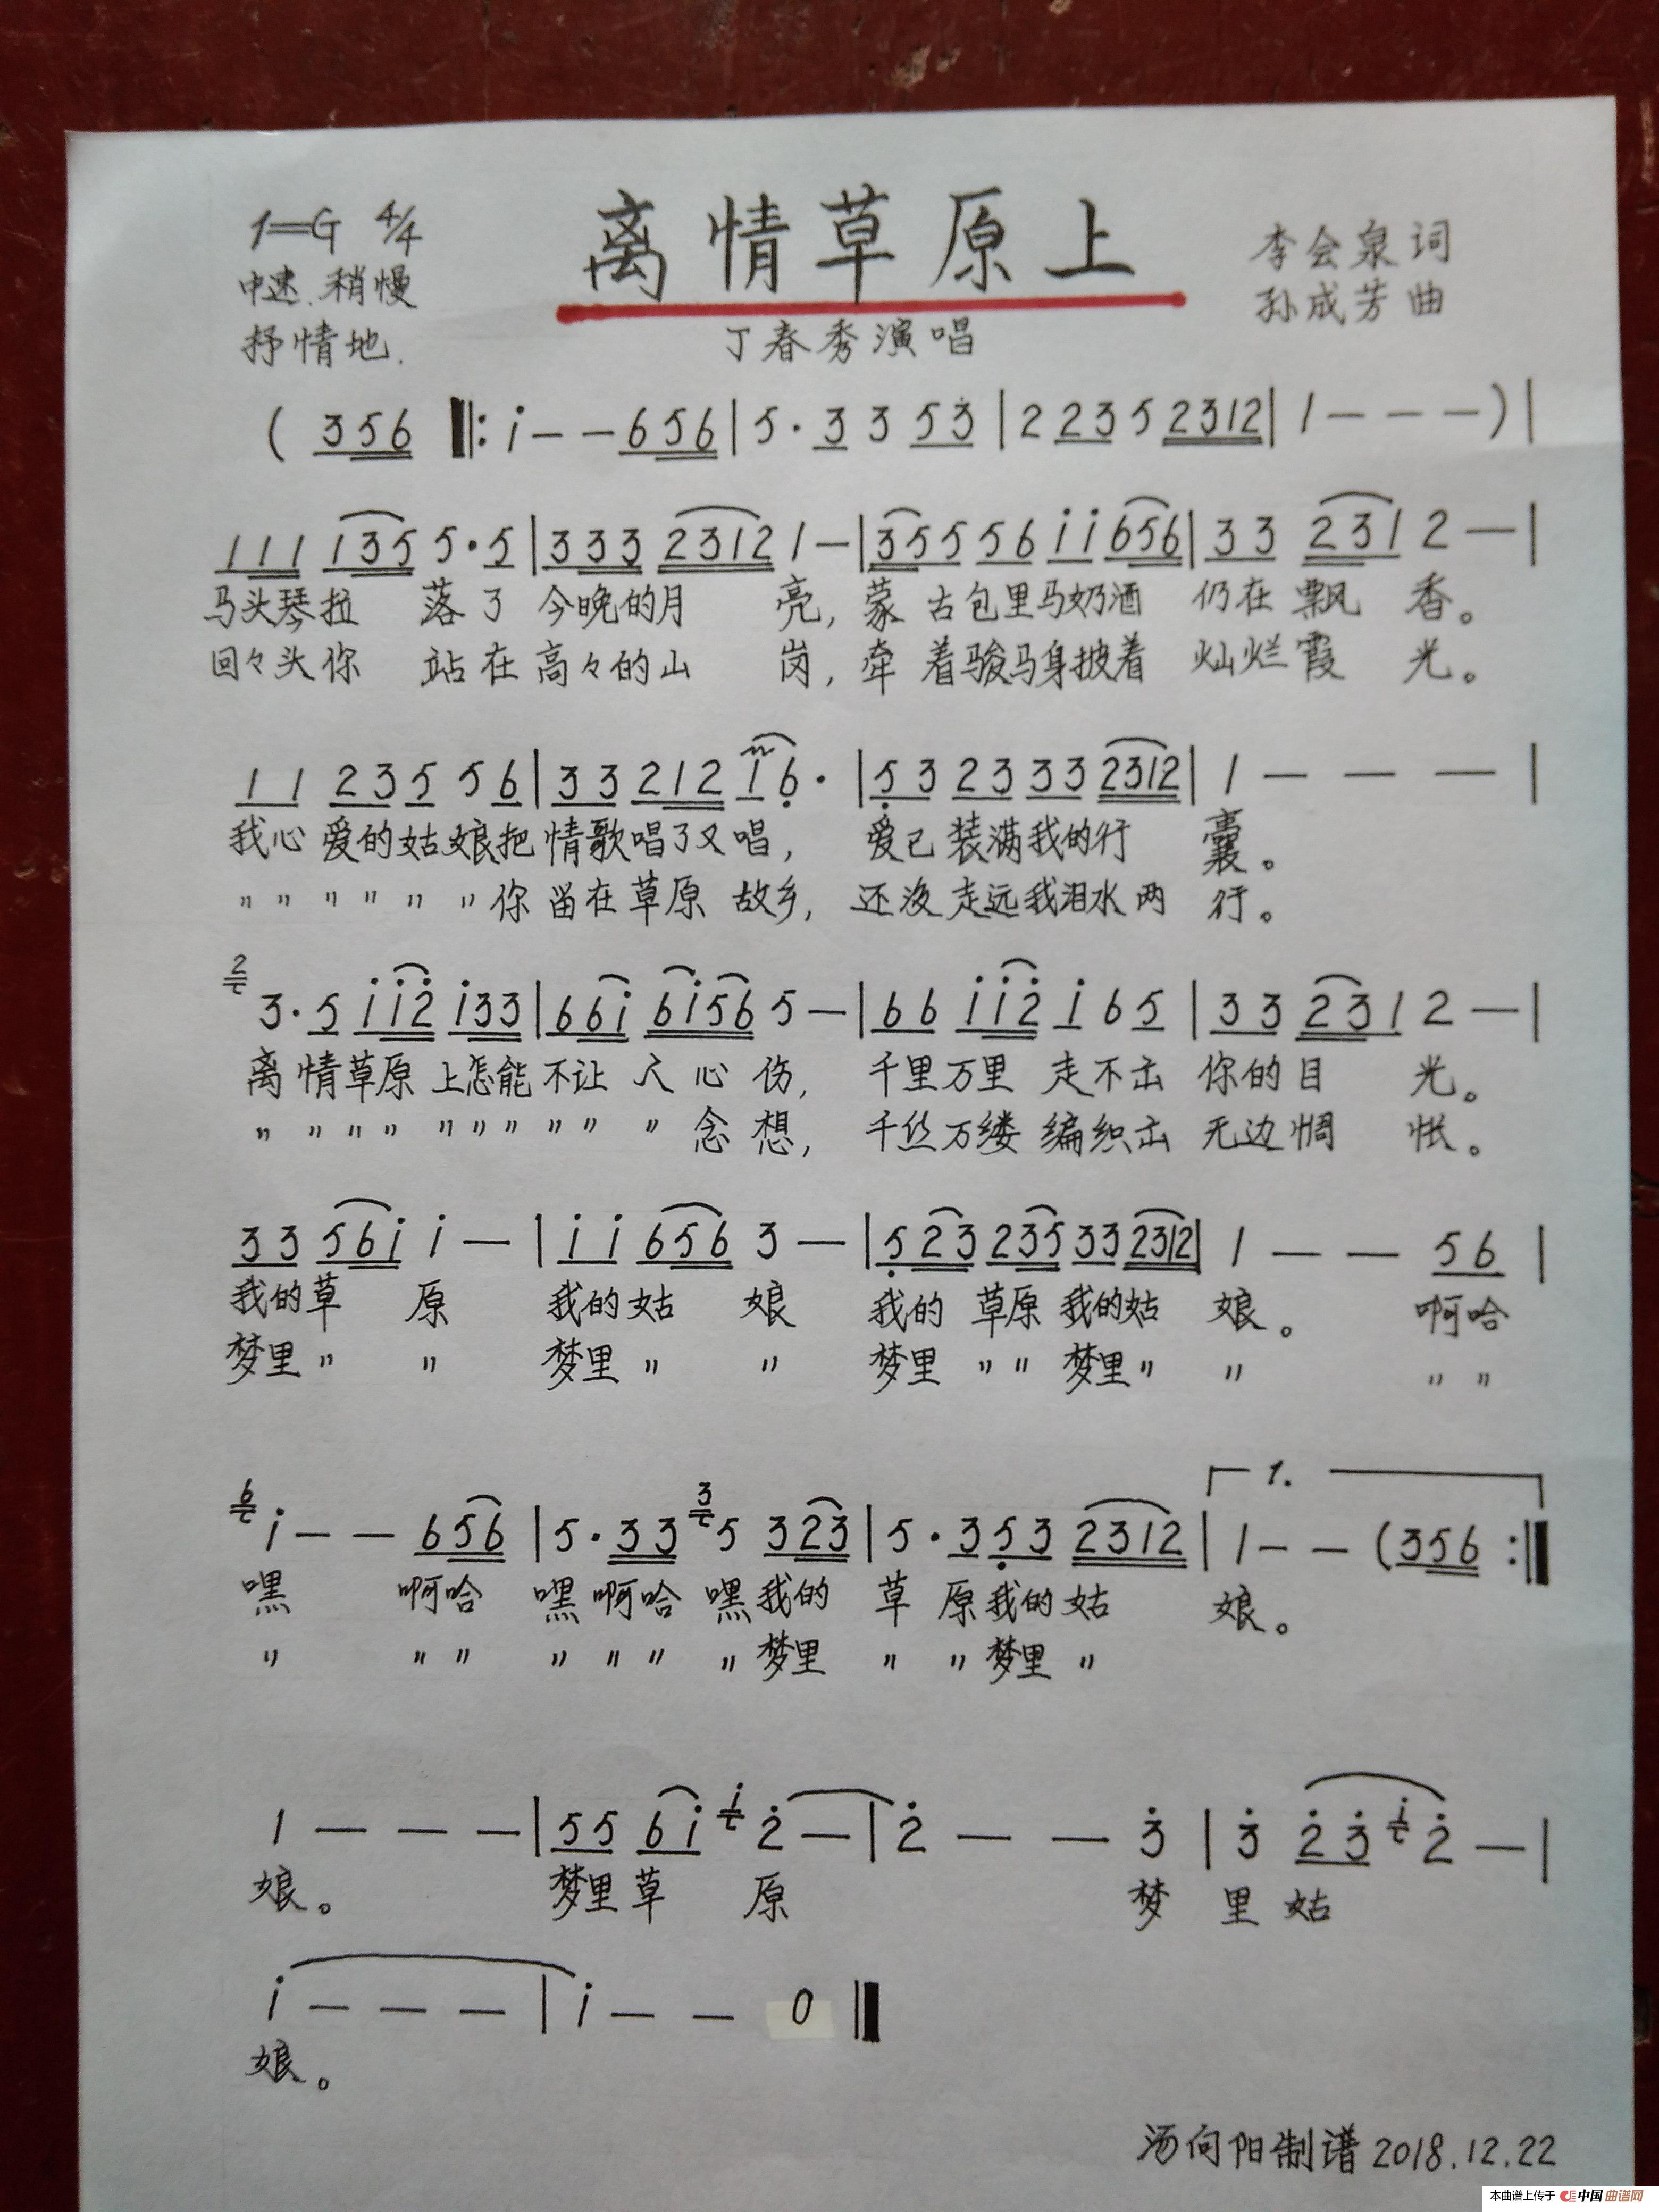 1=G 4/4 离情草原上 李会泉词
中速.稍慢 孙成芳曲
抒情地. 丁春秀演唱
( 356 ‖: i - - 656 | 5 · 3 3 53 | 2 23 5 2312 | 1 - - - ) |
111 135 5·5 | 333 2312 1 - | 355 56 ii 656 | 33 231 2 - |
马头琴拉 落了 今晚的月 亮, 蒙古包里马奶酒 仍在飘 香。
回々头你 站在高々的山 岗, 牵着骏马身披着 灿烂霞 光。
11 235 56 | 33 212 16· | 53 23 33 2312 | 1 - - - |
我心爱的姑娘把情歌唱了又唱, 爱已装满我的行 囊。
〃 〃 〃 〃 〃 〃 你留在草原 故乡, 还没走远我泪水两 行。
2 3·5 ii2 i33 | 66i 6i56 5 - | 66 ii2 i 65 | 33 231 2 - |
离情草原 上怎能不让 人心伤, 千里万里 走不出 你的目 光。
〃 〃 〃 〃 〃 〃 〃 〃 〃 〃 念想, 千丝万缕 编织出 无边惆 怅。
33 56i i - | ii 656 3 - | 523 235 33 2312 | 1 - - 56 |
我的草 原 我的姑 娘 我的 草原 我的姑 娘。 啊哈
梦里〃 〃 梦里〃 〃 梦里 〃〃 梦里〃 〃 〃 〃
6 i - - 656 | 5·33 3 5 323 | 5·353 2312 | 1. 1 - - (356 :‖
嘿 啊哈 嘿啊哈 嘿我的 草 原我的姑 娘。
〃 〃 〃 〃 〃 〃 〃梦里 〃 〃梦里〃
1 - - - | 55 6i i 2 - | 2 - - 3 | 3 23 i 2 - |
娘。 梦里草 原 梦 里 姑
i - - - | i - - 0 ‖
娘。
汤向阳制谱2018.12.22
本曲谱上传于 中国曲谱网